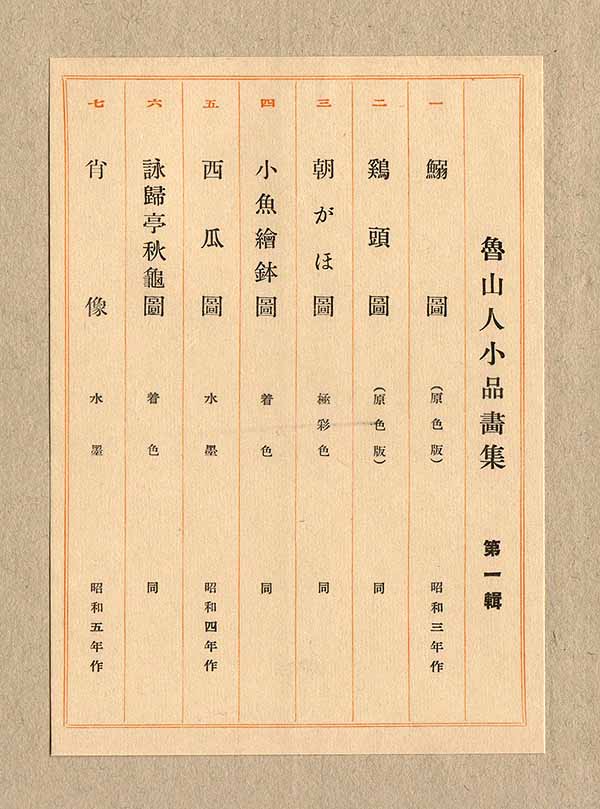 魯山人小品畫集 第一輯
一 鰯圖 (原色版) 昭和三年作
二 鷄頭圖 (原色版) 同
三 朝がほ圖 極彩色 同
四 小魚繪鉢圖 着色 同
五 西瓜圖 水墨 昭和四年作
六 詠歸亭秋龜圖 着色 同
七 肖像 水墨 昭和五年作